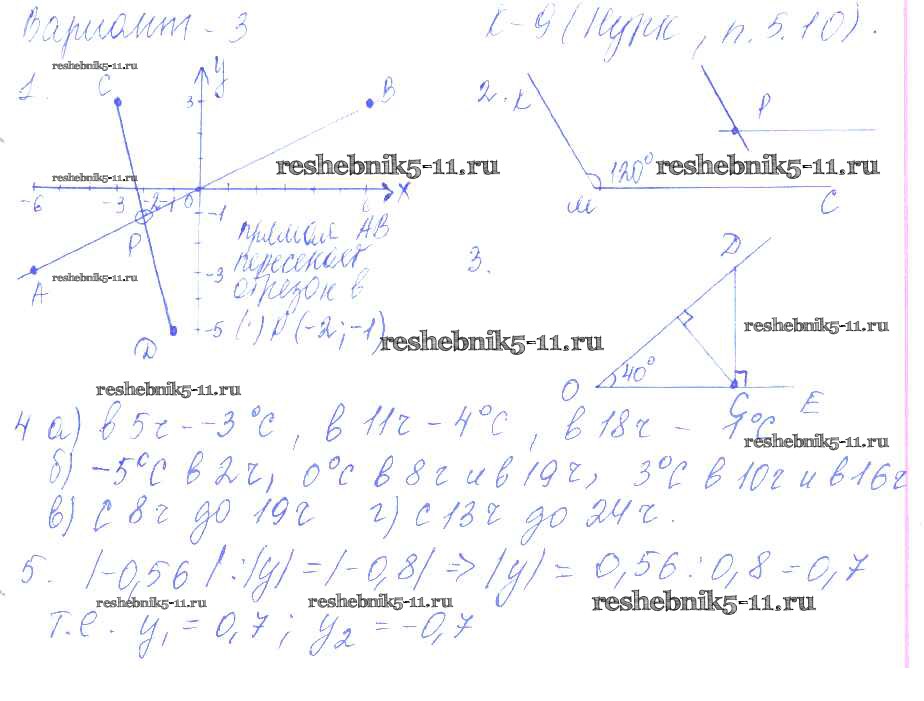 Вариант - 3
К-9 (Нурк, п. 5.10).
reshebnik5-11.ru
1.
C
y
3
B
2. K
P
reshebnik5-11.ru
reshebnik5-11.ru
120°
reshebnik5-11.ru
-6
-3
-2
-1
0
6
x
M
C
-1
P
прямая AB
пересекает
отрезок в
(·) P (-2; -1)
-3
A
reshebnik5-11.ru
-5
D
reshebnik5-11.ru
3.
D
reshebnik5-11.ru
O
40°
C
E
reshebnik5-11.ru
4 а) в 5ч - -3°C, в 11ч - 4°C, в 18ч - 1°C
reshebnik5-11.ru
б) -5°C в 2ч, 0°C в 8ч и в 19ч, 3°C в 10ч и в 16ч
в) с 8ч до 19ч г) с 13ч до 24ч.
5. |-0,56| : |y| = |-0,8| => |y| = 0,56 : 0,8 = 0,7
reshebnik5-11.ru
reshebnik5-11.ru
reshebnik5-11.ru
т.е. y₁ = 0,7; y₂ = -0,7